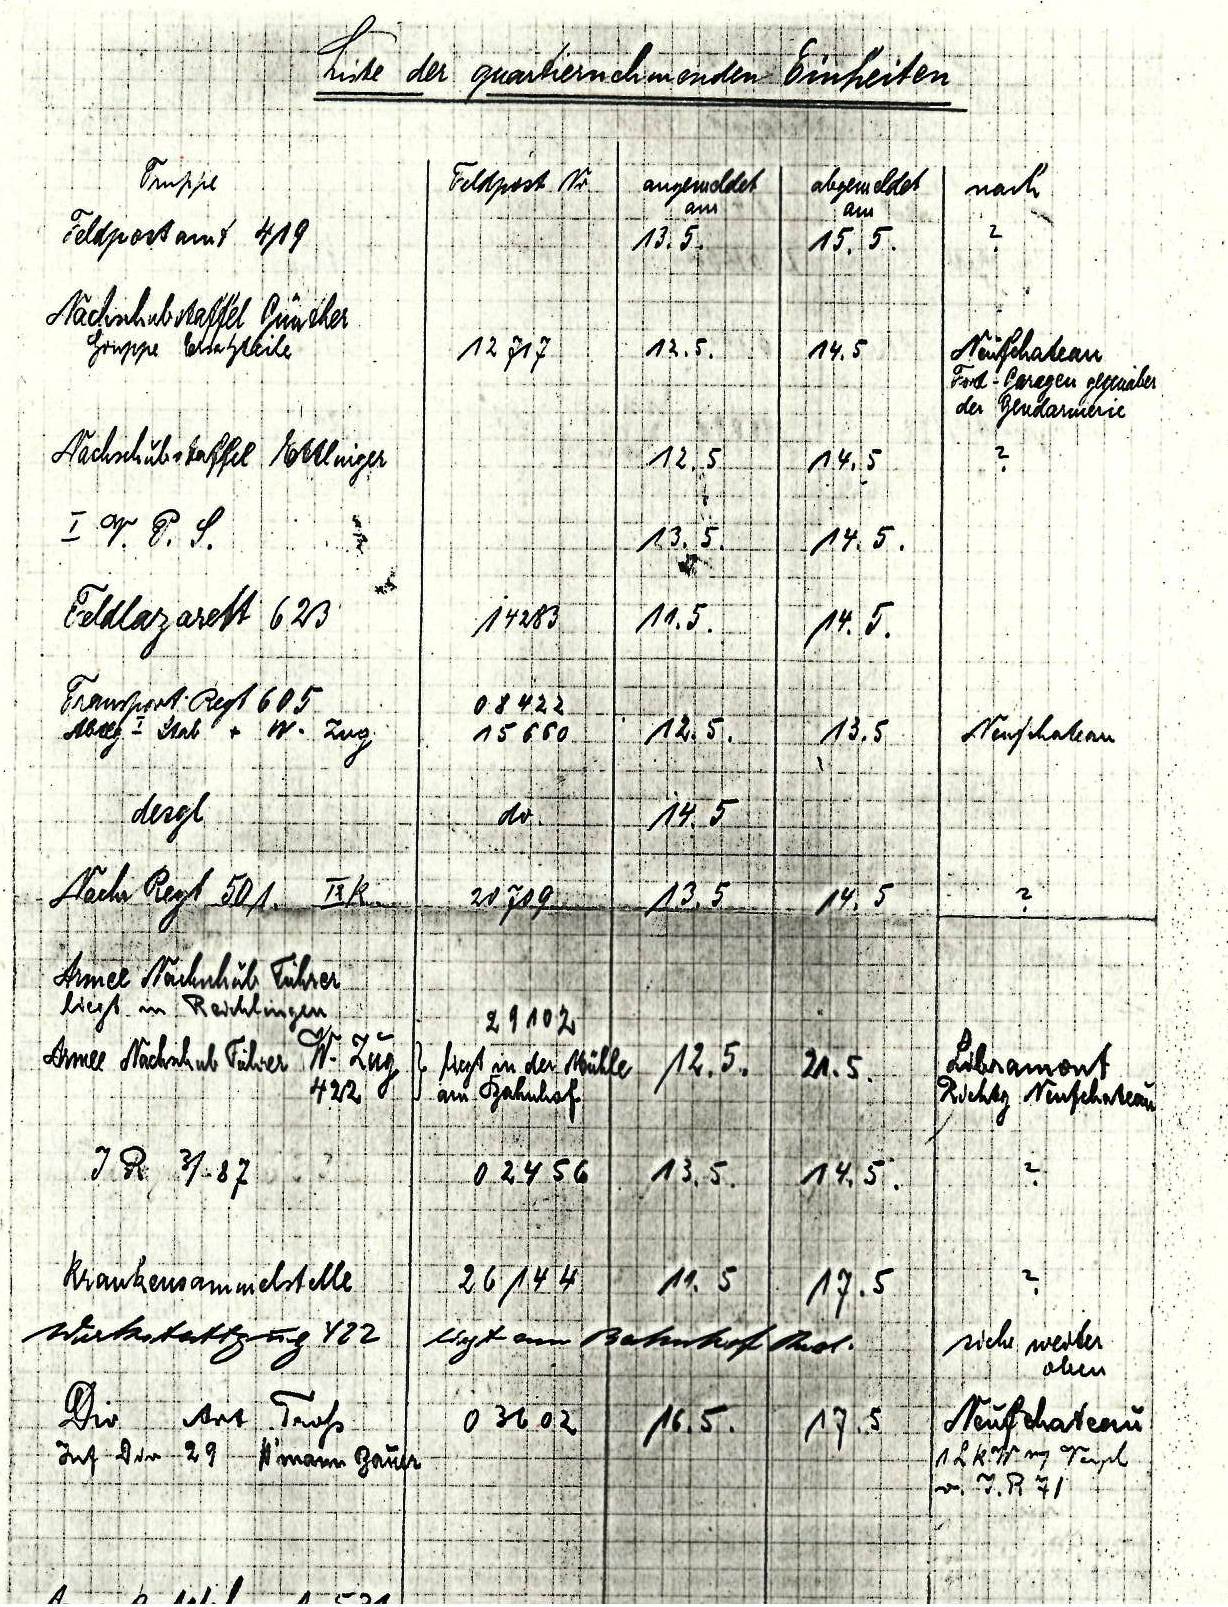 Liste der quartiernehmenden Einheiten
Truppe Feldpost Nr angemeldet am abgemeldet am nach
Feldpostamt 419 13.5. 15.5. ?
Nachschubstaffel Günther
Gruppe Ersatzteile 12717 12.5. 14.5 Neufchateau
Ford-Garagen gegenüber
der Gendarmerie
Nachschubstaffel Ettlinger 12.5 14.5 ?
I V. P. S. 13.5. 14.5.
Feldlazarett 623 14283 11.5. 14.5.
Transport Regt 605 08422
Abtlg I Stab + W. Zug 15660 12.5. 13.5 Neufchateau
desgl do. 14.5
Nachr Regt 501. 20709 13.5 14.5 ?
Armee Nachschub Führer
liegt in Reichlingen 29102
Armee Nachschub Führer W. Zug 422 } liegt in der Mühle am Bahnhof 12.5. 21.5. Libramont
Richtg Neufchateau
I R 3/.87 02456 13.5. 14.5. ?
Krankensammelstelle 26144 11.5 17.5 ?
Werkstattzug 422 liegt am Bahnhof siehe weiter
oben
Div Art Troß 03602 16.5. 17.5 Neufchateau
Inf Div 29 H'mann Bauer 1 LKW
v. I.R 71